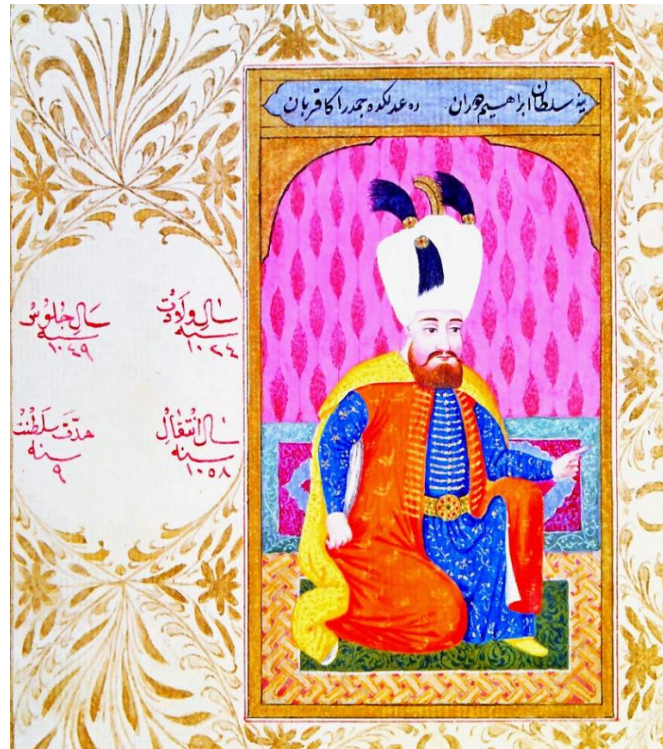 ینه سلطان ابراهیم دوران   ده عدلكده جمدر اكا قربان
سال ولادت
سنه
١٠٢٤
سال جلوس
سنه
١٠٤٩
سال انتقال
سنه
١٠٥٨
مدّت سلطنت
سنه
٩